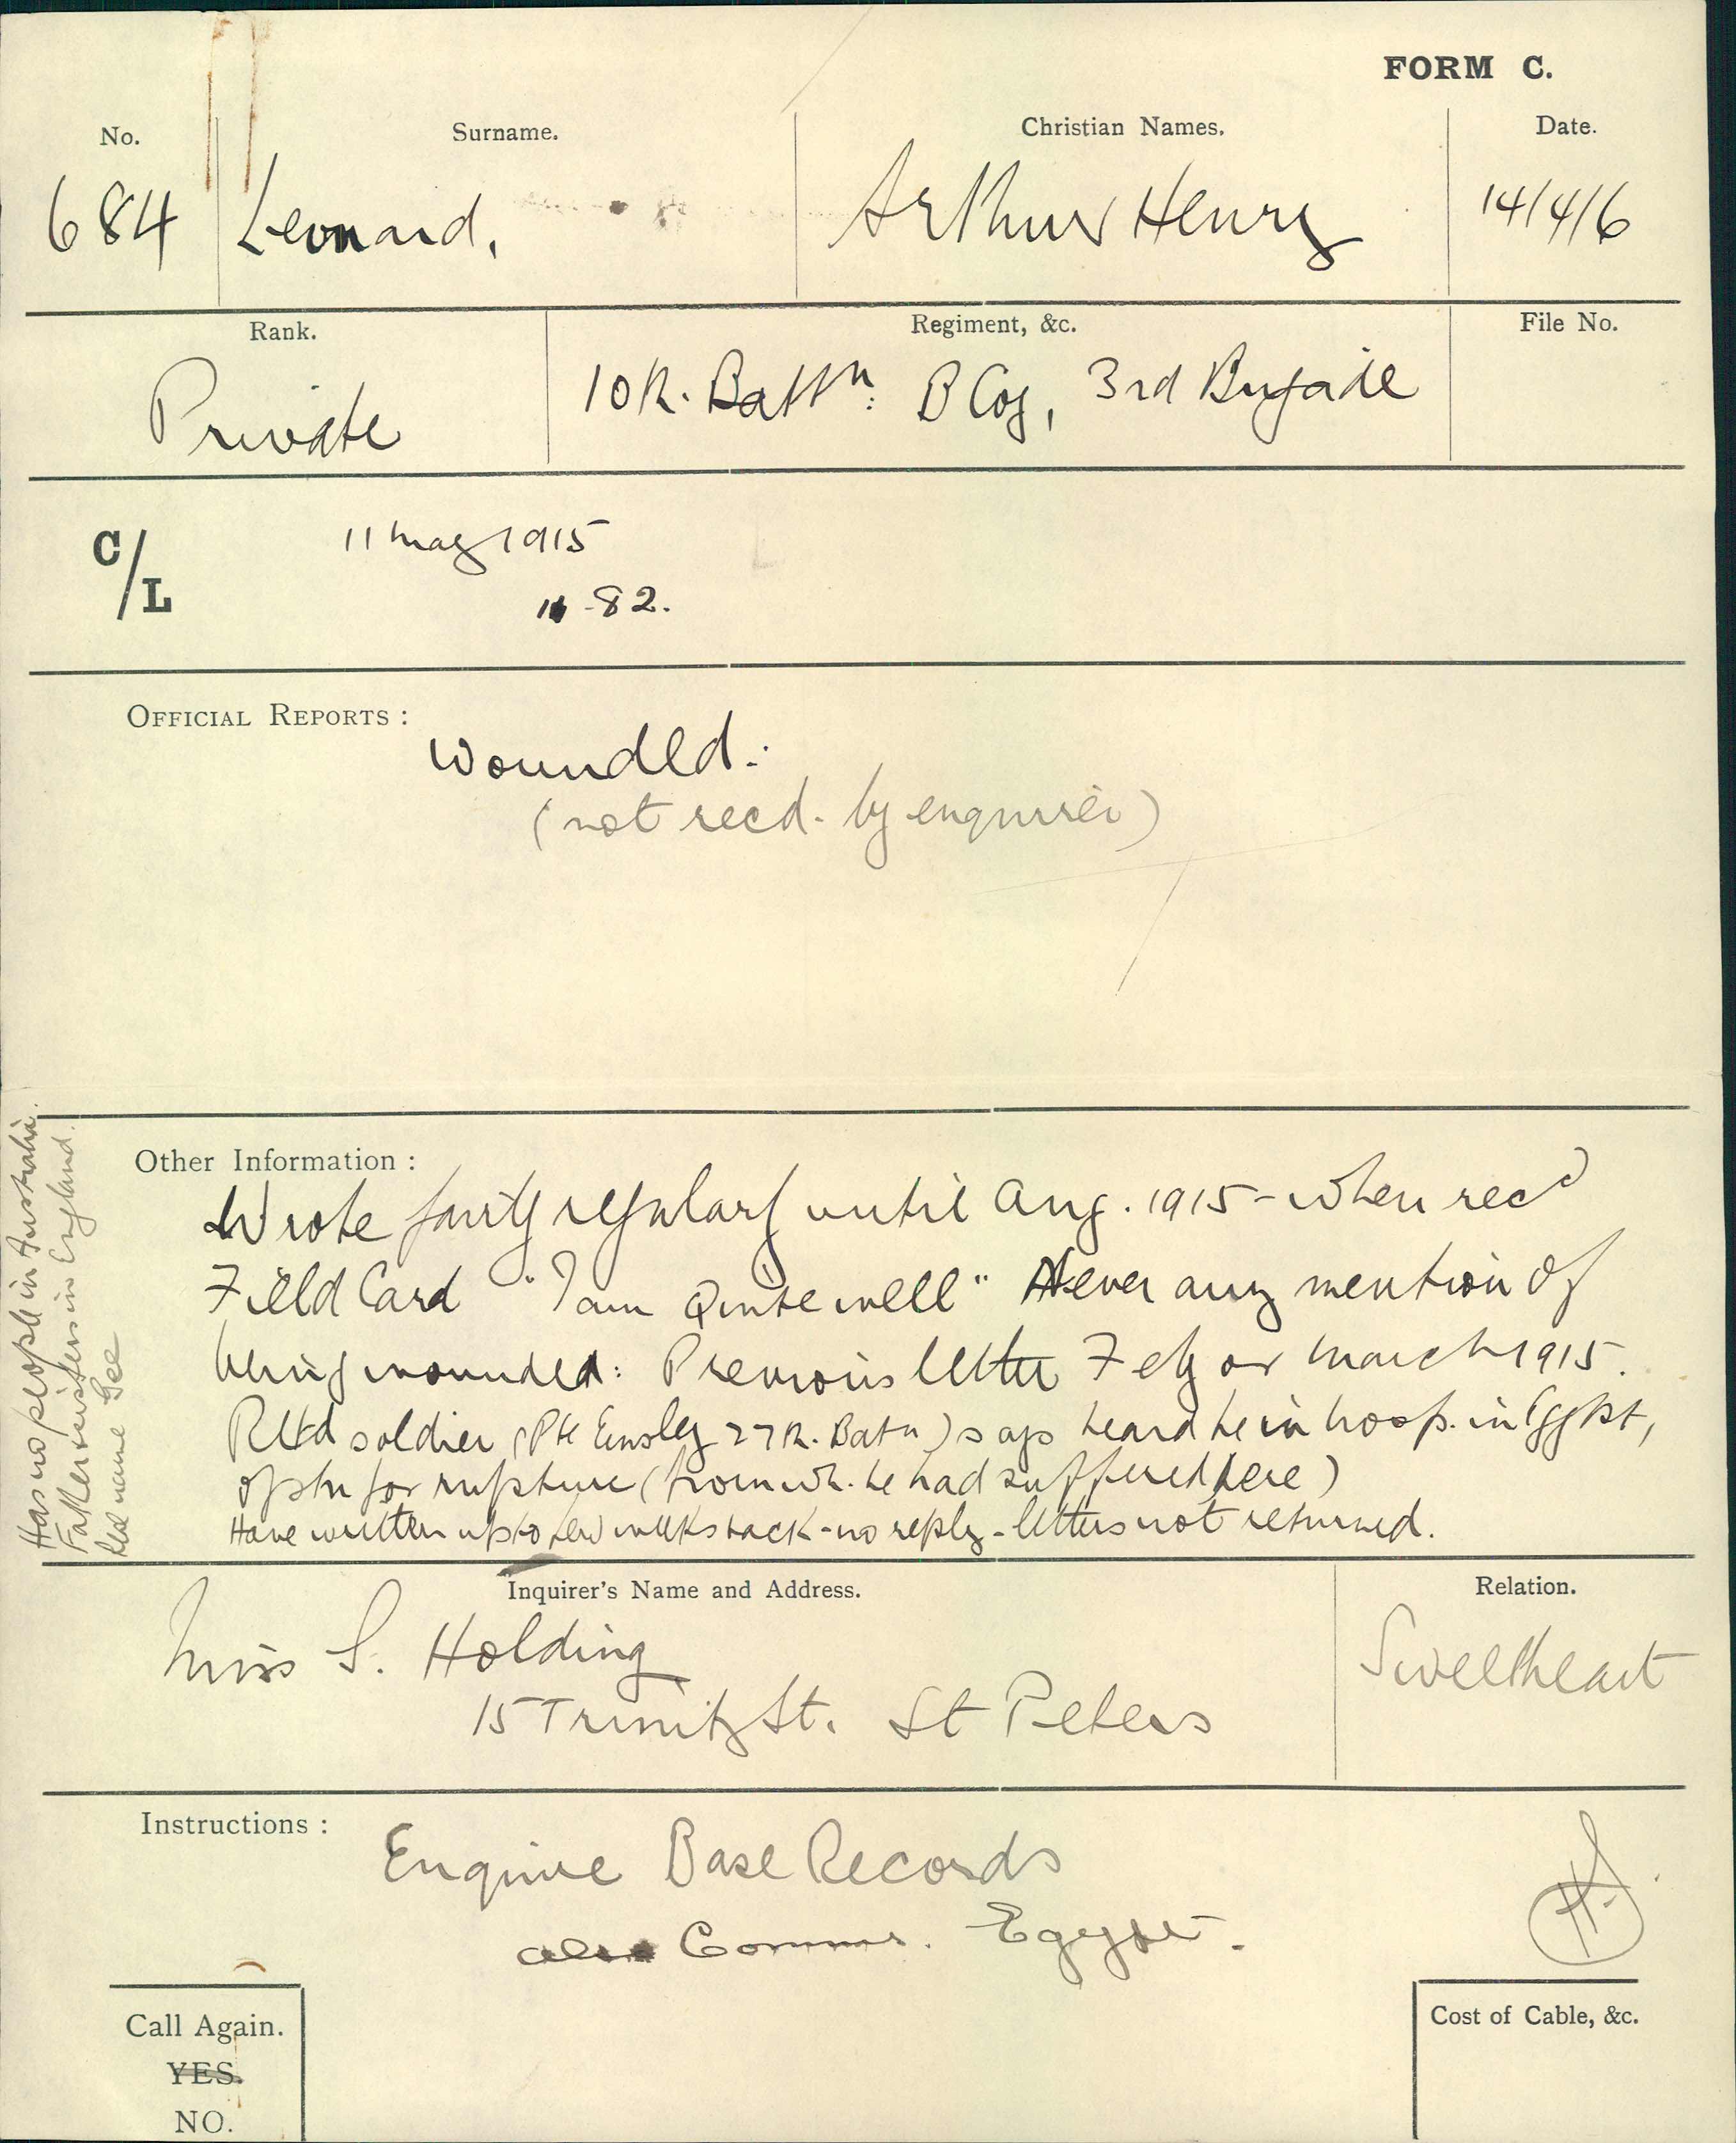 FORM C.
No. Surname. Christian Names. Date.
684 Leonard, Arthur Henry 14/4/16
Rank. Regiment, &c. File No.
Private 10th. Battn: B Coy, 3rd Brigade
C/L 11 May 1915
-82.
OFFICIAL REPORTS:
Wounded.
(not recd. by enquirer)
Has no people in Australia.
Father & sisters in England.
Real name Gee
Other Information:
Wrote fairly regularly until Aug. 1915 - when recd
Field Card "I am Quite well" Never any mention of
being wounded: Previous letter Feby or March 1915.
Retd soldier (Pte Emsley 27th. Batn) says heard he in hosp. in Egypt,
optn for rupture (from wh. he had suffered here)
Have written up to few weeks back - no reply - letters not returned.
Inquirer's Name and Address. Relation.
Miss S. Holding Sweetheart
15 Trinity St. St Peters
Instructions:
Enquire Base Records
also Commr. Egypt.
Call Again.
YES.
NO.
Cost of Cable, &c.